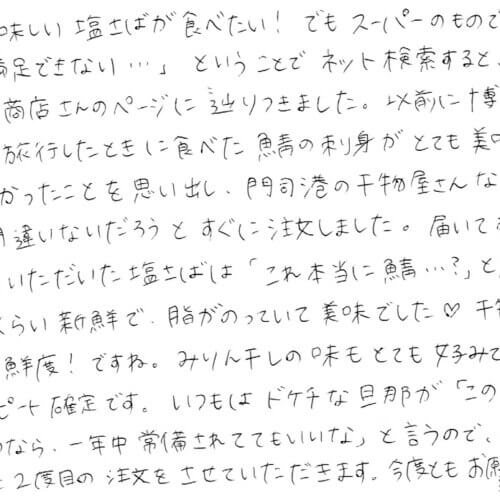 味しい 塩さばが 食べたい! でも スーパーのもので
足できない…」 ということで ネット検索すると、
商店さんのページに 辿りつきました。以前に博
旅行したときに食べた 鯖の刺身が とても 美味
かったことを 思い出し、門司港の干物屋さんな
違いないだろうと すぐに注文しました。届いてお
いただいた塩さばは「これ本当に鯖…?」と
くらい 新鮮で、脂がのっていて 美味でした♡ 干物
鮮度! ですね。みりん干しの 味も とても 好みで
ピート確定です。いつもは ドケチな旦那が「この
のなら、一年中 常備されててもいいな」と言うので、
と2度目の 注文を させていただきます。今度とも お願